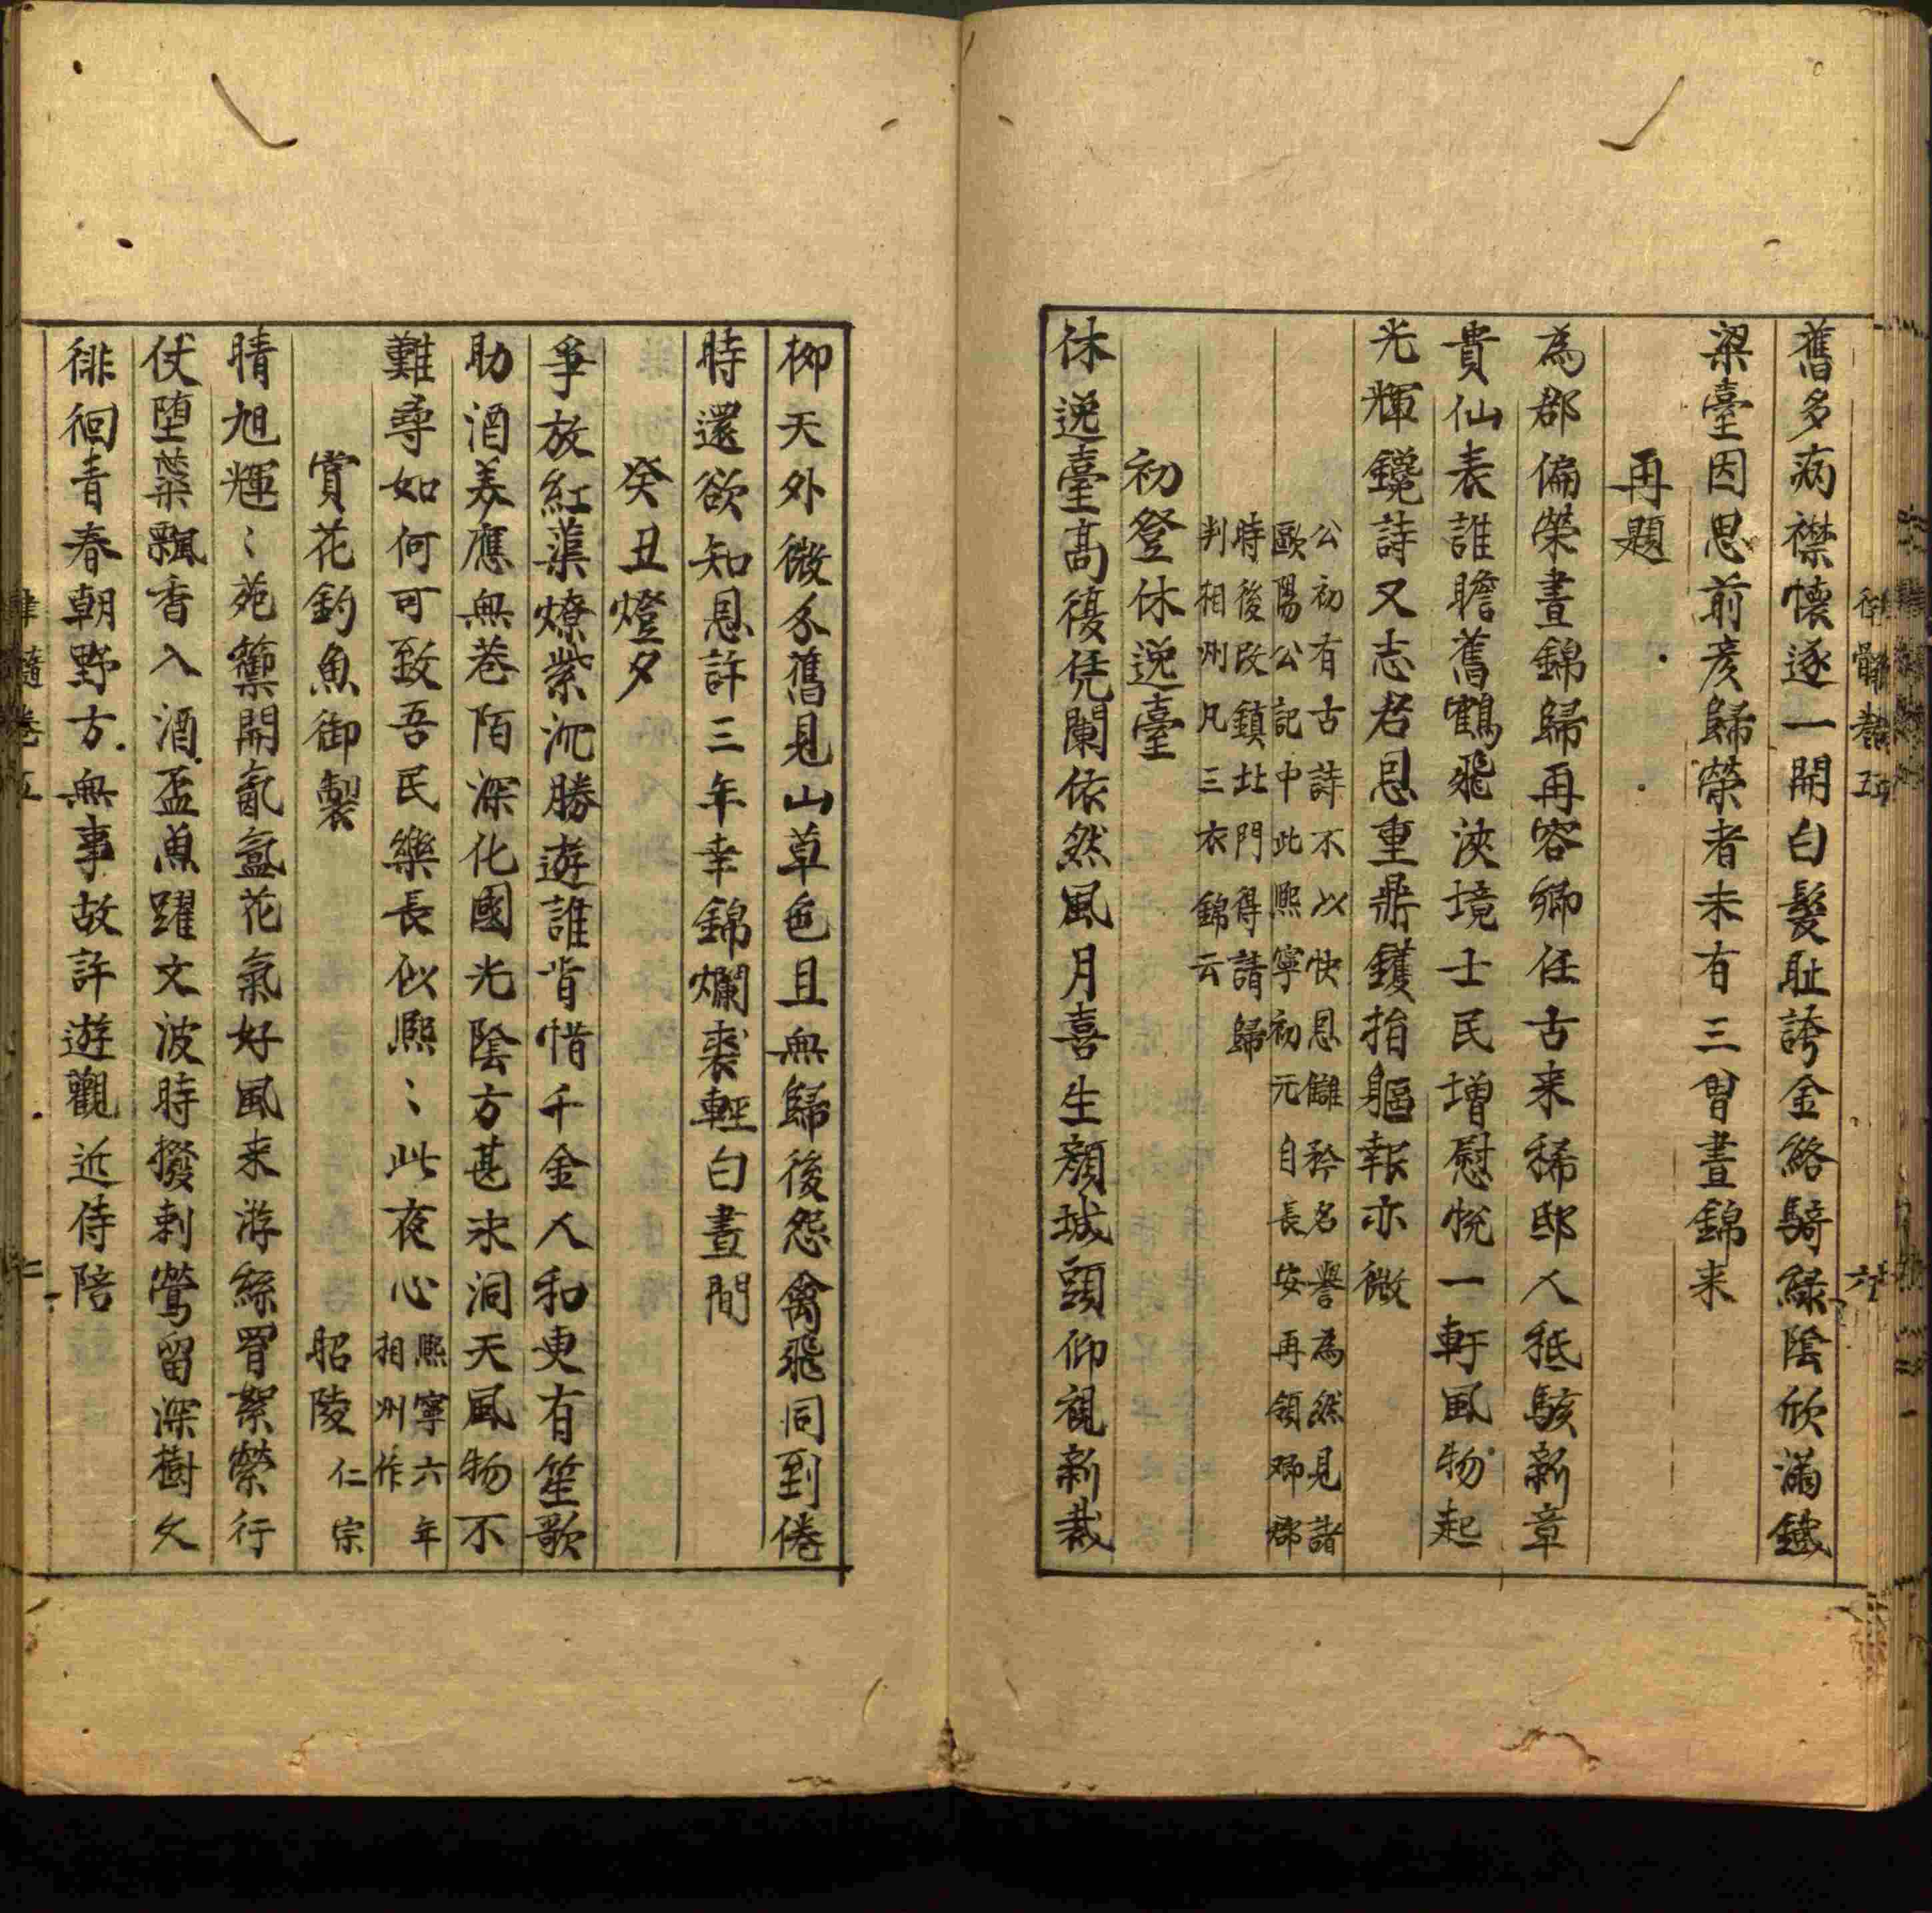 舊多病襟懷逐一開白髮耻誇金絡騎緑陰欣滿鐵
梁臺因思前彦歸榮者未有三曾晝錦来
再題
為郡偏榮晝錦歸再容鄉任古来稀邸人秪駭新章
貴仙表誰瞻舊鶴飛浹境士民增慰悅一軒風物起
光輝鑱詩又志君恩重鼎鑊指軀報亦微
公初有古詩不以快恩讎矜名譽為然見諸
歐陽公記中此熈寧初元自長安再領鄉郡
時後改鎮北門得請歸
判相州凡三衣錦云
初登休逸臺
休逸臺高復凭闌依然風月喜生顏城頭仰視新栽
柳天外微分舊見山草色且無歸後怨禽飛同到倦
時還欲知恩許三年幸錦爛裘輕白晝間
癸丑燈夕
爭放紅蕖燎紫沈勝遊誰肯惜千金人和更有笙歌
助酒美應無巷陌深化國光陰方甚永洞天風物不
難尋如何可致吾民樂長似熈〻此夜心
熈寧六年
相州作
賞花釣魚御製
昭陵
仁宗
晴旭輝〻苑籞開氤氲花氣好風来游絲罥絮縈行
仗堕蘂飄香入酒盃魚躍文波時撥剌鶯留深樹久
徘徊青春朝野方無事故許遊觀近侍陪
髓卷五
六